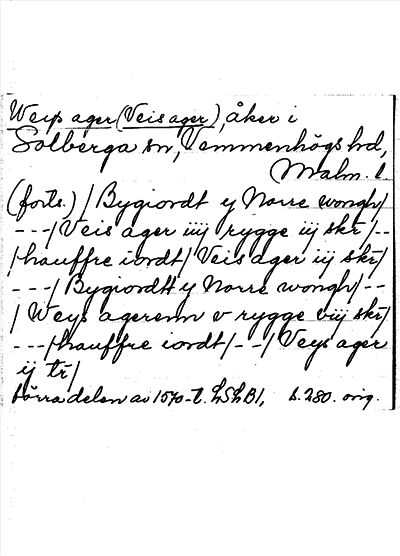 Weys ager (Veis ager), åker i
Solberga sn, Vemmenhögs hd,
Malm. l.
(forts.) / Bygiordt y Norre wongh/
---/ Veis ager iiij rygge iij skr̄ /--
/hauffre iordt/ Veis ager iij skr̄/
---/ Bygiordt y Norre wongh/--
/ Weys agerenn v rygge viij skr̄/
---/hauffre iordt/--/ Veys ager
ij tr̄/
förra delen av 1570-t. LSLB1, s. 280. orig.